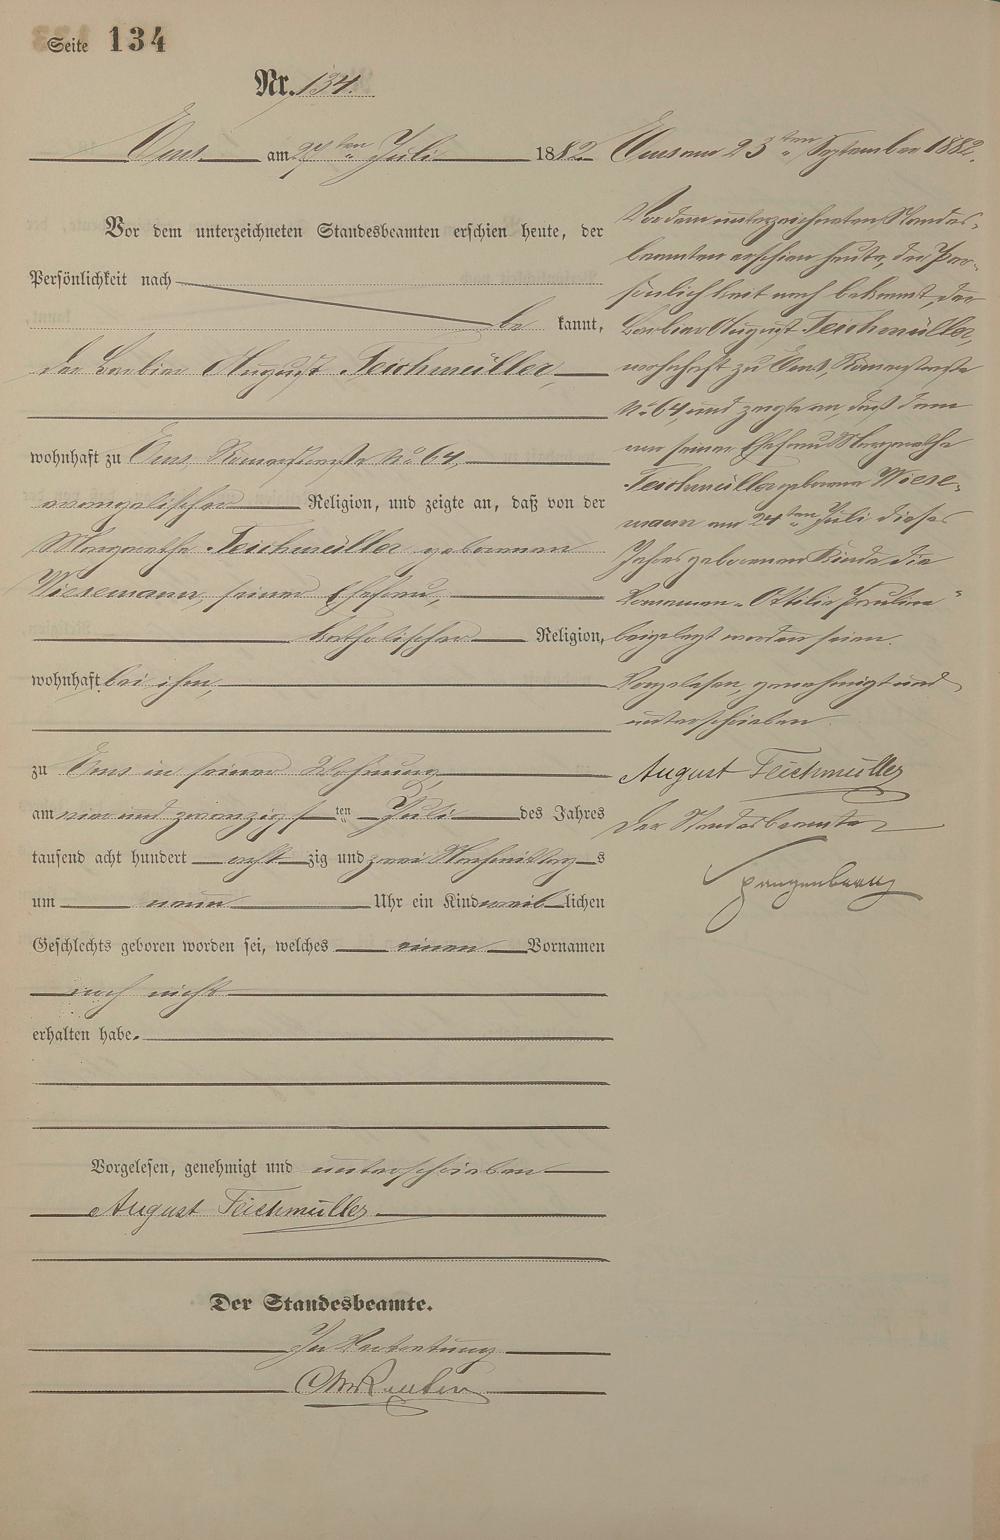 Seite 134
Nr. 134.
Ems am 27ten Juli 1882
Vor dem unterzeichneten Standesbeamten erschien heute, der
Persönlichkeit nach
be kannt,
der Barbier August Teichmüller,
wohnhaft zu Ems, Römerstraße No 64,
evangelischer Religion, und zeigte an, daß von der
Margarethe Teichmüller geborenen
Wiesemann, seiner Ehefrau,
katholischer Religion,
wohnhaft bei ihm,
zu Ems in seiner Wohnung,
am vier und zwanzigsten ten Juli des Jahres
tausend acht hundert acht zig und zwei Nachmittags
um neun Uhr ein Kind weiblichen
Geschlechts geboren worden sei, welches einen Vornamen
noch nicht
erhalten habe.
Vorgelesen, genehmigt und unterschrieben
August Teichmüller
Der Standesbeamte.
In Vertretung
Ems am 23ten September 1882.
Vor dem unterzeichneten Standes-
beamten erschien heute, der Per-
sönlichkeit nach bekannt, der
Barbier August Teichmüller,
wohnhaft zu Ems, Römerstraße
No 64, und zeigte an, daß dem
von seiner Ehefrau Margarethe
Teichmüller geborene Wiese-
mann am 24ten Juli dieses
Jahres geborenen Kinde die
Vornamen „Ottilie Pauline“
beigelegt worden seien.
Vorgelesen, genehmigt und
unterschrieben.
August Teichmüller
Der Standesbeamte
Spangenberg